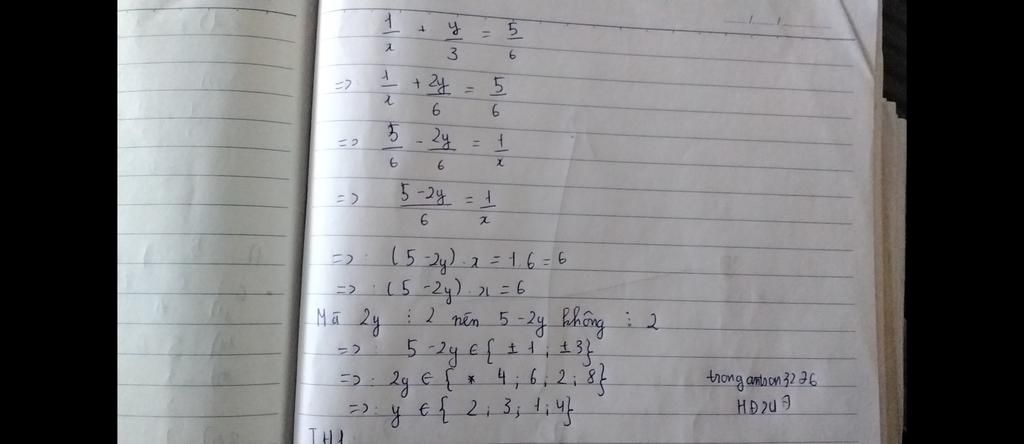 1/x + y/3 = 5/6
=> 1/x + 2y/6 = 5/6
=> 5/6 - 2y/6 = 1/x
=> 5-2y/6 = 1/x
=> (5-2y).x = 1.6 = 6
=> (5-2y).x = 6
Mà 2y ⋮ 2 nên 5-2y không ⋮ 2
=> 5-2y ∈ { ±1; ±3}
=> 2y ∈ { 4; 6; 2; 8}
=> y ∈ { 2; 3; 1; 4}
TH1